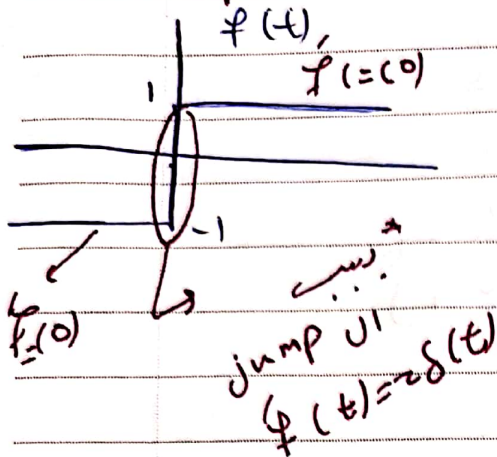 f(t)
f'(=(0)
1
-1
f'=(0)
بسبب *
ال jump
f'(t)=2δ(t)